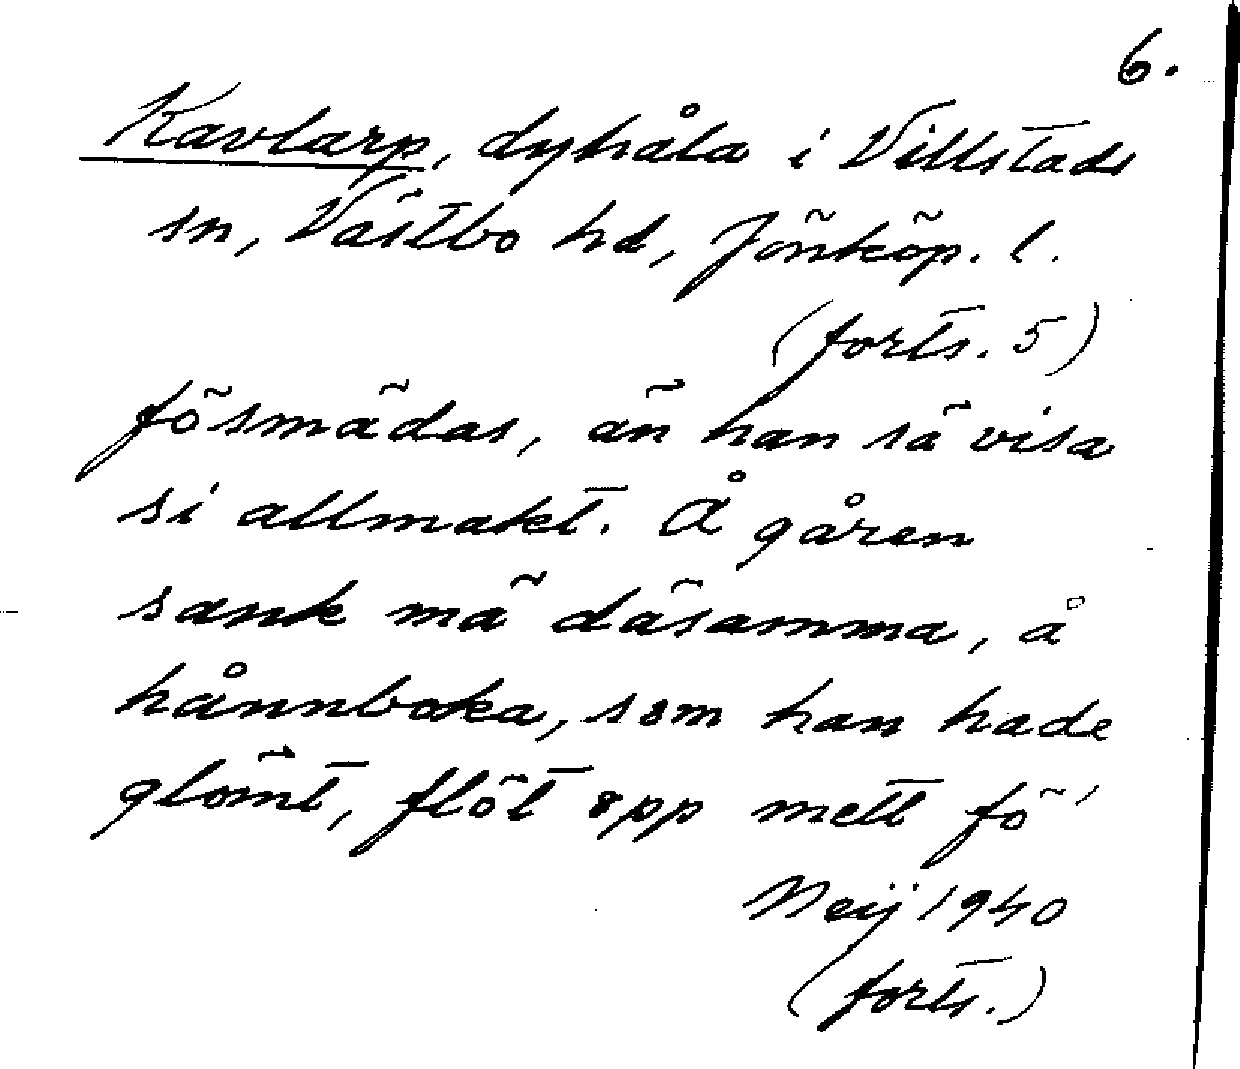 6.
Kavlarp, dyhåla i Villstads
sn, Västbo hd, Jönköp. l.
(forts. 5)
fösmädas, än han sä visa
si allmakt. Å gåren
sank mä däsamma, å
hånnboka, som han hade
glömt, flöt opp mett fö'
Neij 1940
(forts.)